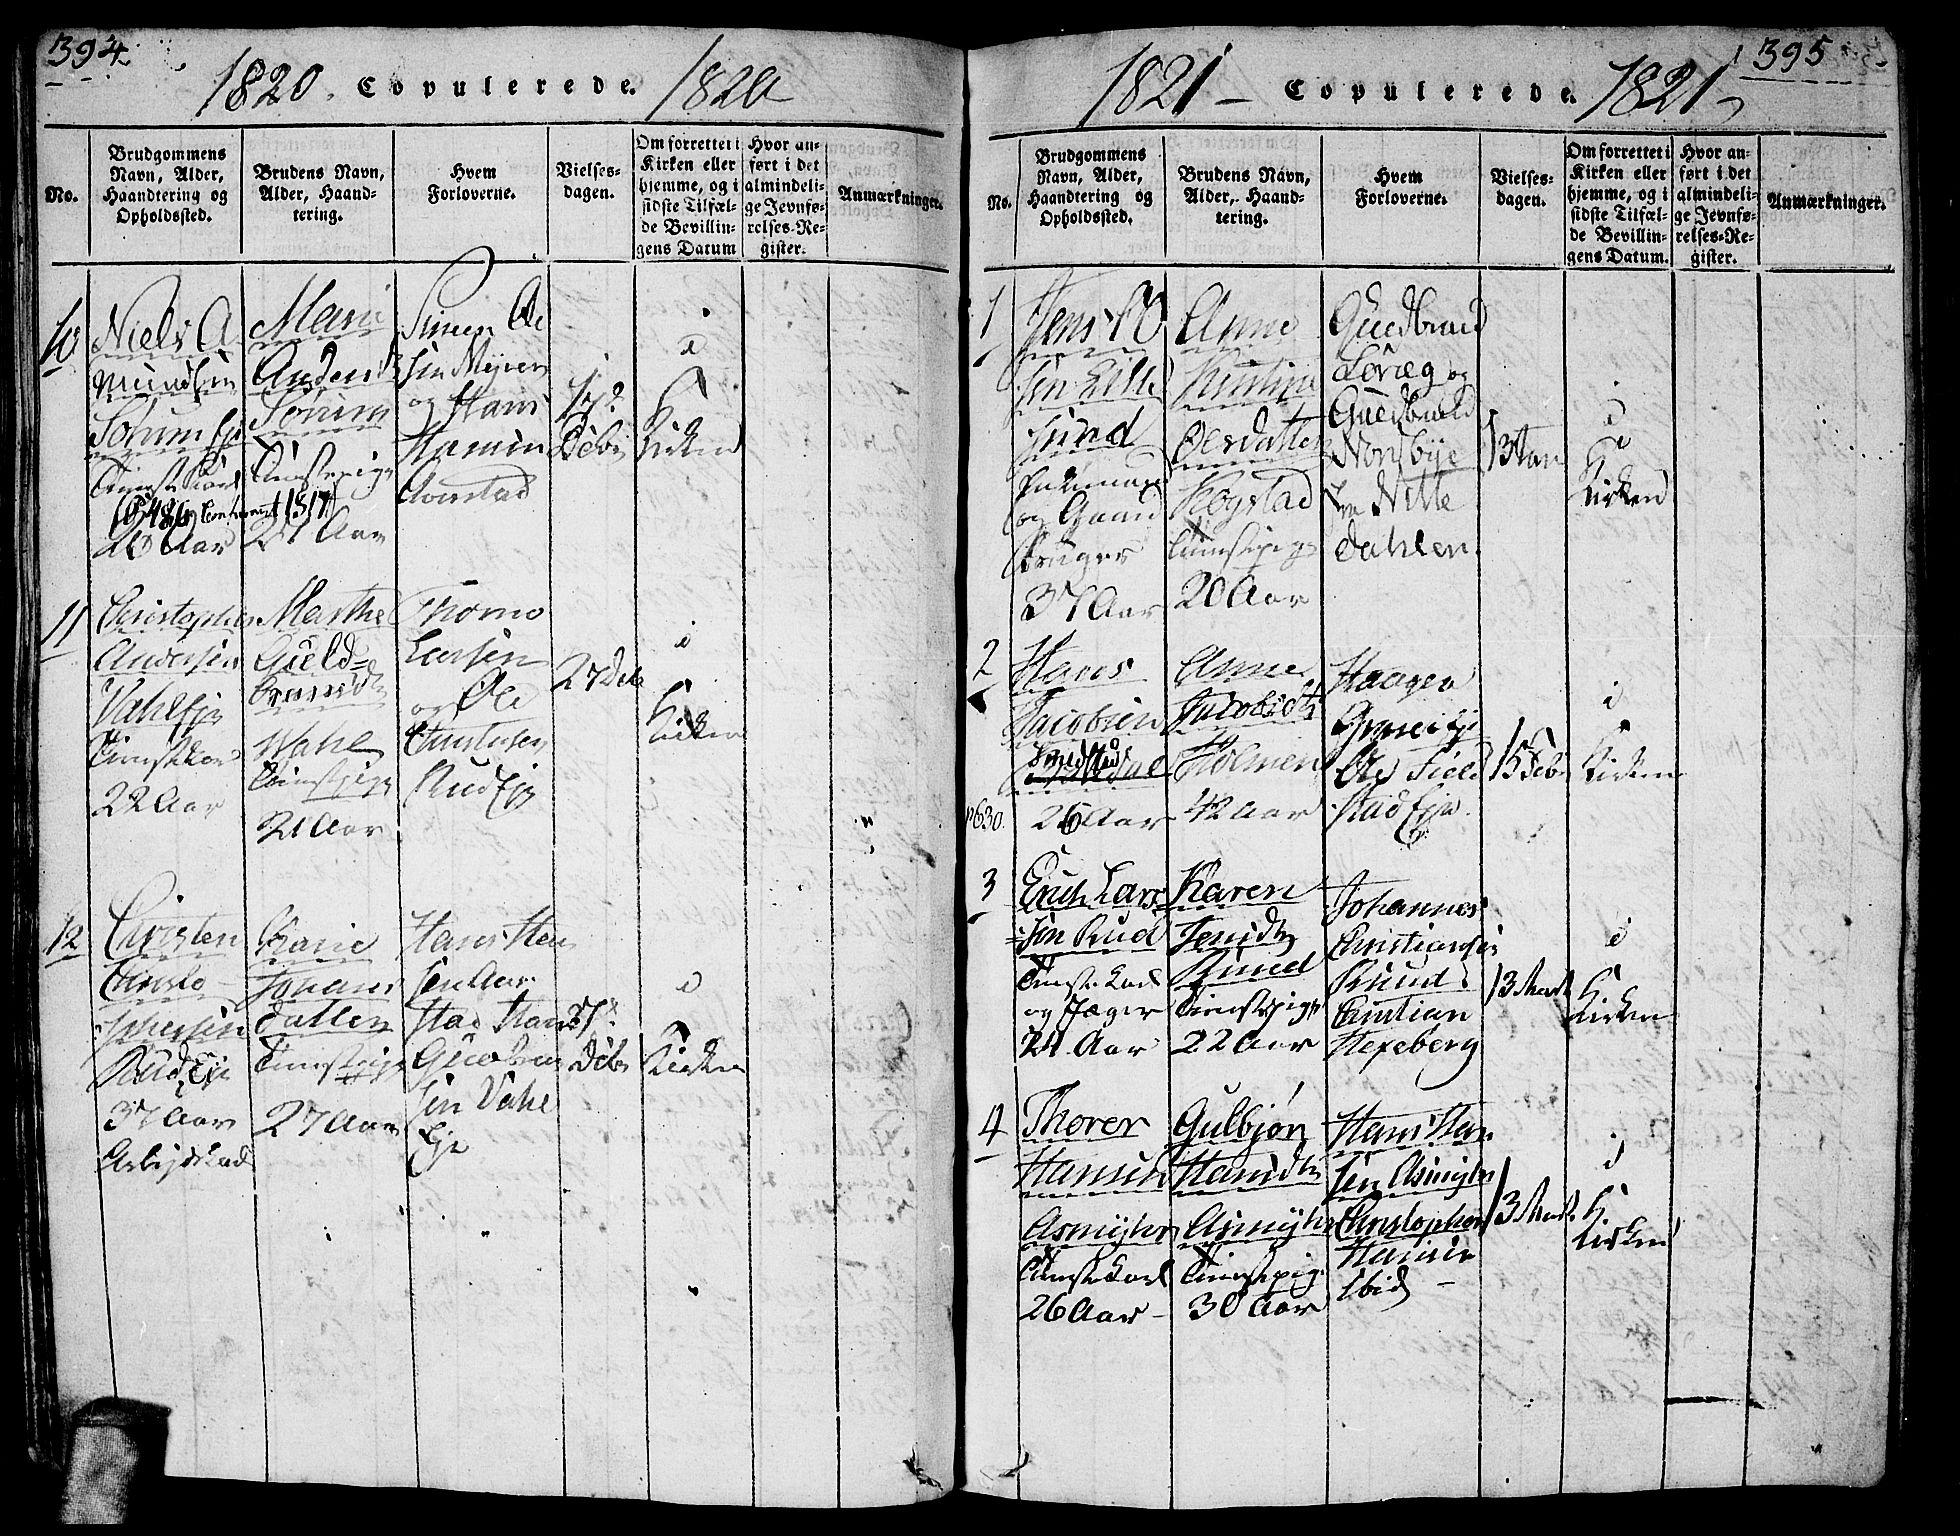 394
1820. Copulerede. 1820
No.
Brudgommens
Navn, Alder,
Haandtering og
Opholdssted.
Brudens Navn,
Alder, Haand-
tering.
Hvem
Forloverne.
Vielses-
dagen.
Om forrettet i
Kirken eller
hjemme, og i
sidste Tilfæl-
de Bevillin-
gens Datum
Hvor an-
ført i det
almindeli-
ge Jevnfø-
relses-Re-
gister.
Anmærkninger.
10
Niels A
mundsen
Sørum Eje
Tieneste Karl
Aar
Marie
Anders D
Sørum
Tienstepige
Aar
Simen Ole
sen Myren
og Hans
Hansen
Aarstad
Debr
i
Kirken
11
Christopher
Andersen
Vahl Eje
Tienstekar
22 Aar
Marthe
Guld=
brandsdtr
Wahl
Tienstepige
21 Aar
Thomo
Larsen
og Ole
Christensen
Rud Eje
27 Deb
i
Kirken
12
Christen
Christo-
phersen
Rud Eje
37 Aar
Arbejdskarl
Karie
Johans
datter
Tienstpige
27 Aar
Hans Han
sen Aar
stad Hans
Gulbran
sen Vahl
Eje
27de
Debr
i
Kirken
395
1821 - Copulerede. 1821
No.
Brudgommens
Navn, Alder,
Haandtering og
Opholdssted.
Brudens Navn,
Alder, Haand-
tering.
Hvem
Forloverne.
Vielses-
dagen.
Om forrettet i
Kirken eller
hjemme, og i
sidste Tilfæl-
de Bevillin-
gens Datum.
Hvor an-
ført i det
almindeli-
ge Jevnfø-
relses-Re-
gister.
Anmærkninger.
1
Jens Ol
sen Lille
Sund
Enkemand
og Gaard
bruger
37 Aar
Anne
Kirstine
Olsdatter
Rogstad
Tienstepige
20 Aar
Guldbrand
Løreg og
Guldbrand
Nordbye
fra Nitte
dahlen
13 Jan
i
Kirken
2
Hans
Jacobsen
Smedstad
p630.
26 Aar
Anne
Jacobsdtr
Holmen
42 Aar
Haagen
Ole Field
stad Eje.
15 Febr
i
Kirken
3
Erich Lars
=sen Rud
Tienste Karl
og Jæger
24 Aar
Karen
Jensdtr
Rund
Tienstepige
22 Aar
Johannes
Christiansen
Rund
Christian
Hexeberg
13 Marts
i
Kirken
4
Thorer
Hansen
Asmyhr
Tienstekarl
26 Aar-
Gulbjør
Hansdtr
Asmyhr
Tienstepig
30 Aar
Hans Han
sen Asmyhr
Christopher
Hansen
Ibid -
13 Marts
i
Kirken